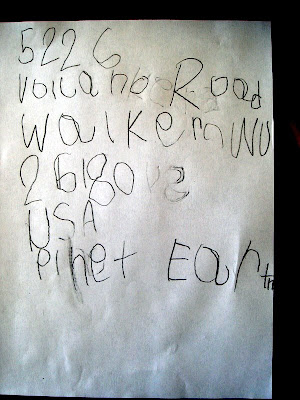 5226
Volcano Road
Walker WV
26180
USA
Plnet Earth